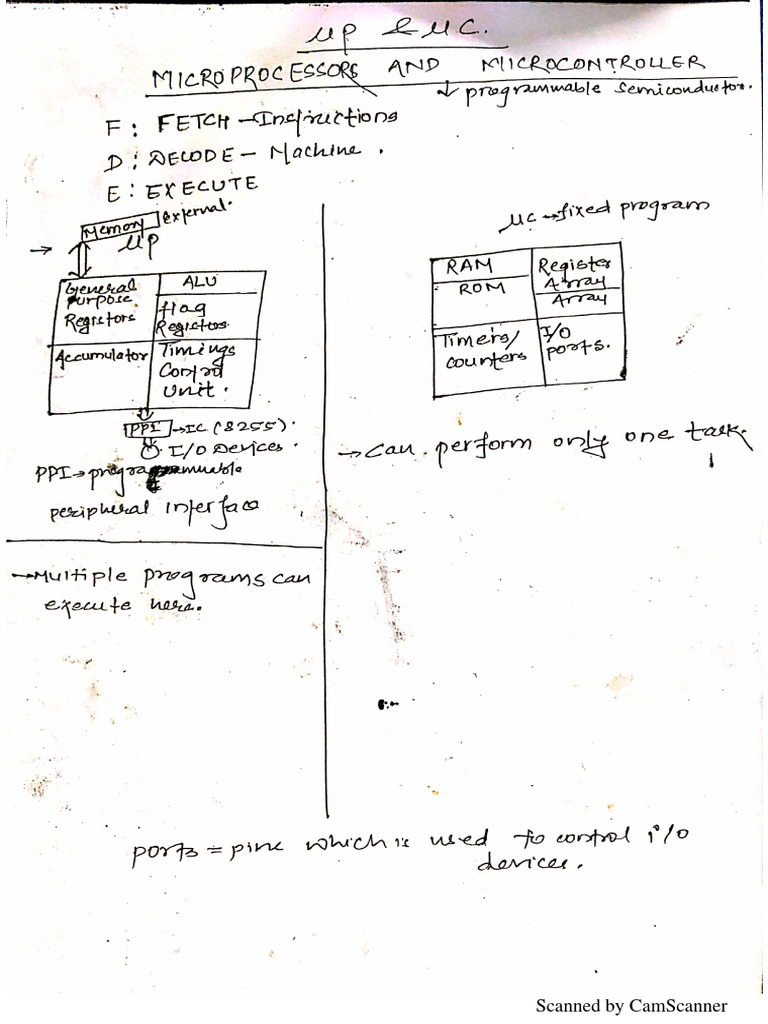 μp & μc.
MICROPROCESSORS AND MICROCONTROLLER
↓ programmable semiconductor.
F: FETCH – Instructions
D: DECODE – Machine.
E: EXECUTE
Memory external.
→ μp
General Purpose Registors
ALU
flag Registors
Accumulator
Timings Control Unit.
PPI → IC (8255).
I/O Devices.
PPI → programmable
peripheral interface
→ Multiple programs can
execute here.
μc → fixed program
RAM
ROM
Register Array
Array
Timers/
counters
I/O
ports.
→ can perform only one task.
ports = pins which is used to control i/o
devices.
Scanned by CamScanner